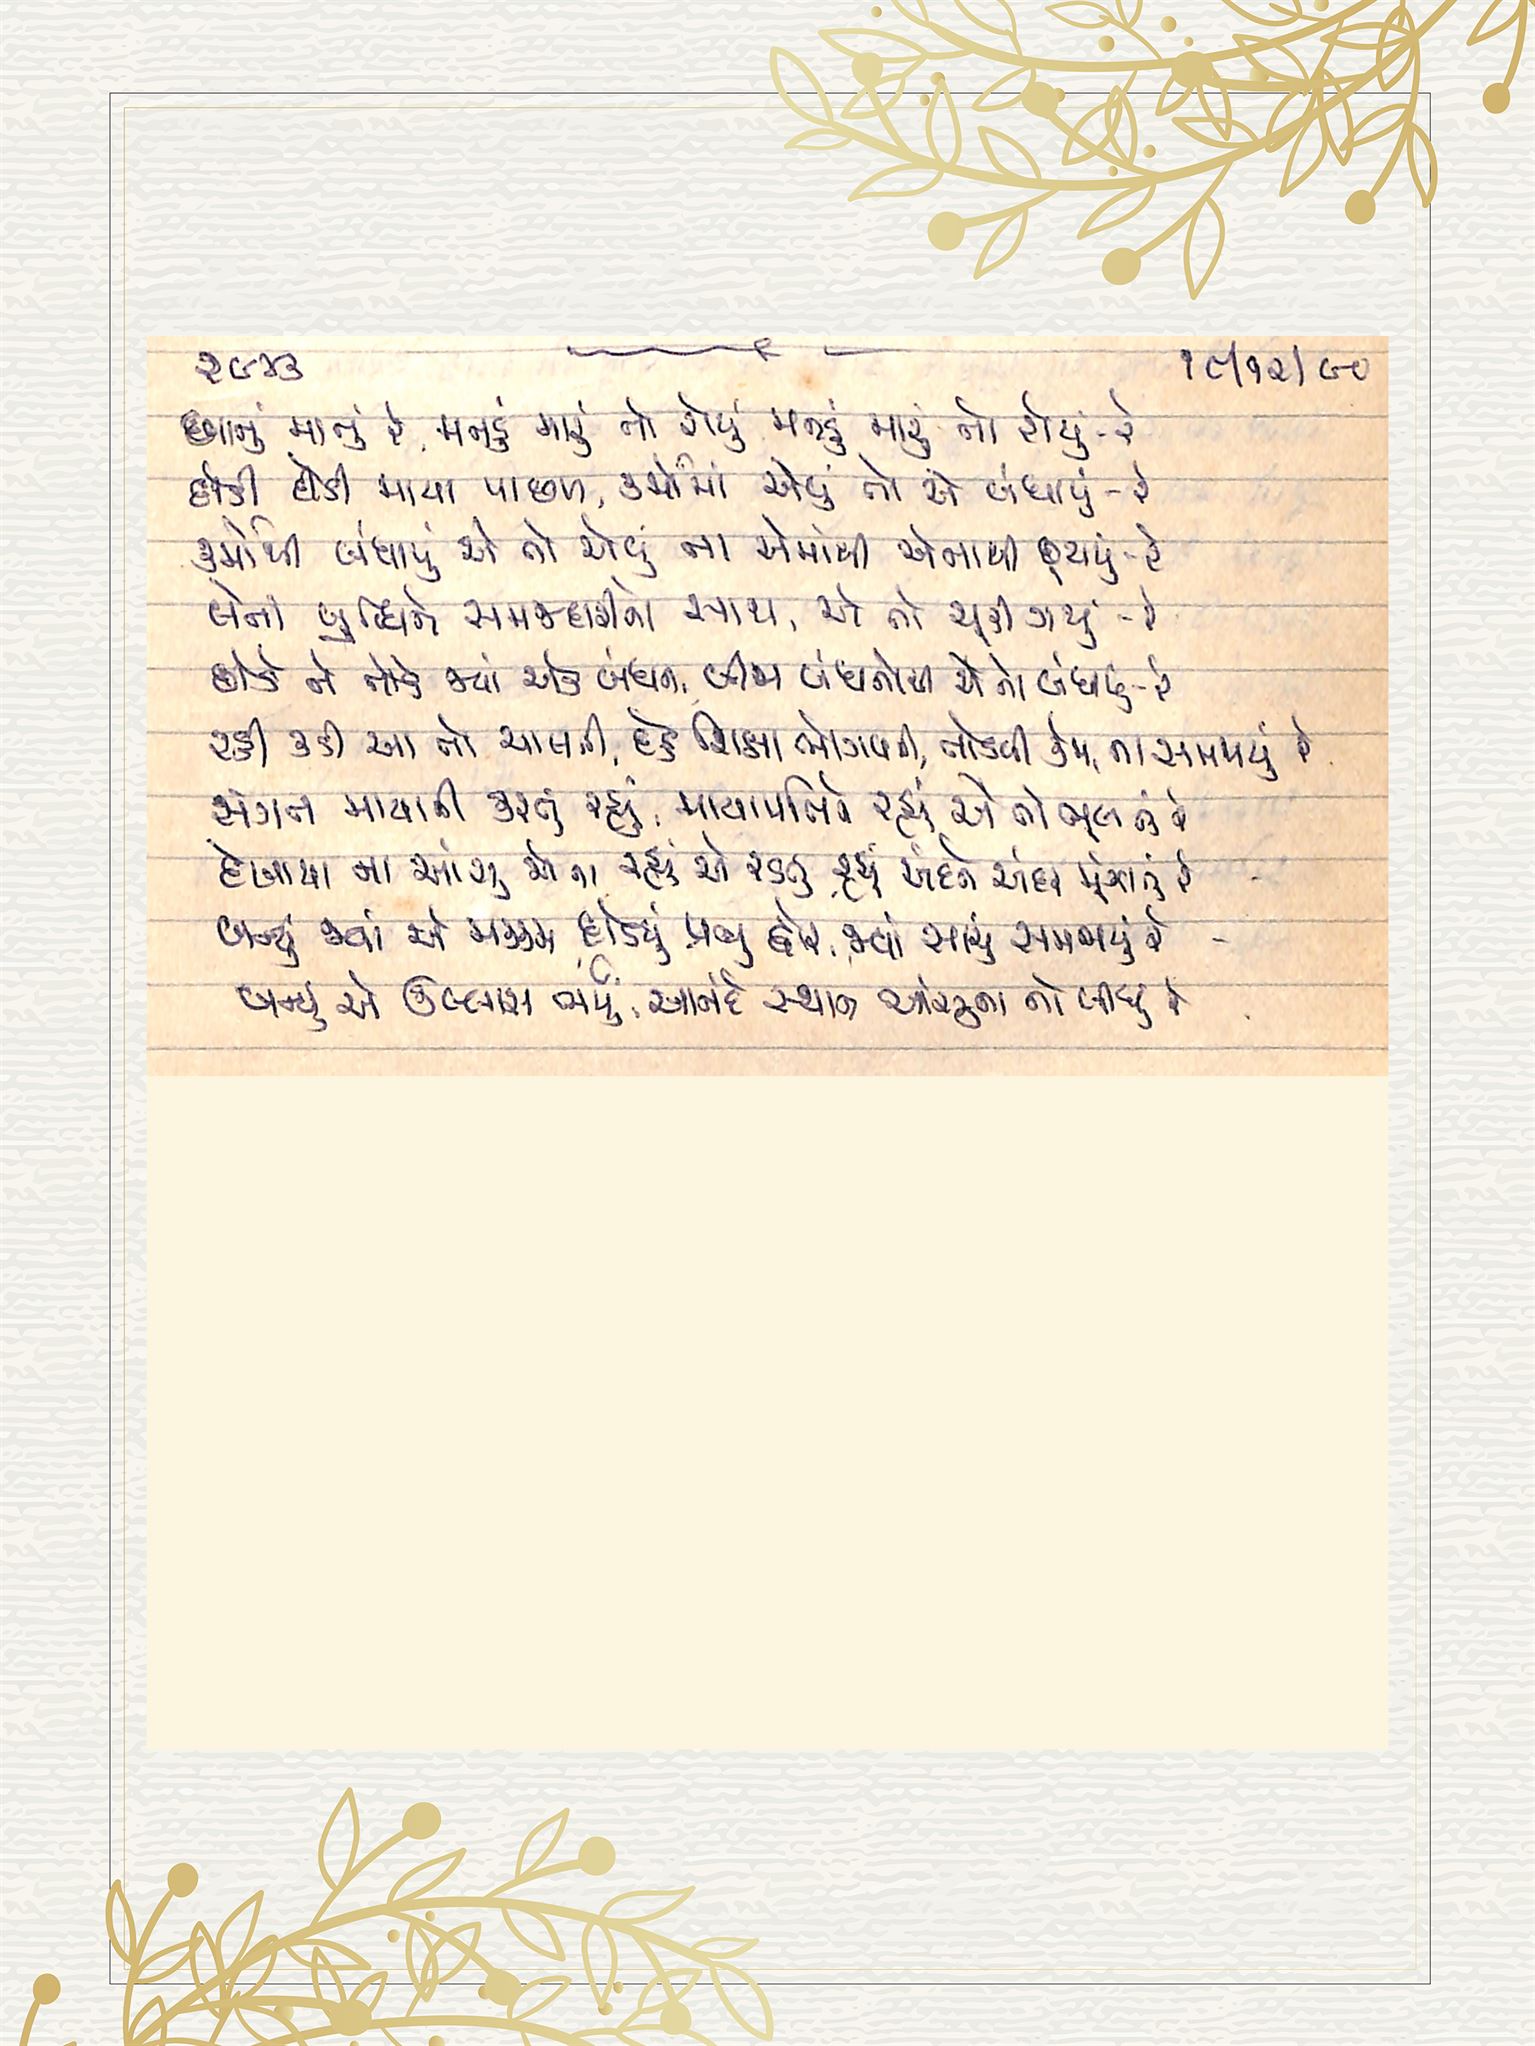 ૨૯૪૩ ૧૮/૧૨/૯૦
છાનું માનું રે, મનડું મારું તો રોયું મનડું મારું તો રોયું - રે
દોડી દોડી માયા પાછળ, કર્મોમાં એવું તો એ બંધાયું - રે
કર્મોથી બંધાયું એ તો એવું ના એમાંથી એનાથી છૂટાયું - રે
લેતાં બુદ્ધિને સમજદારીનો સાથ, એ તો ચૂકી ગયું - રે
છોડે ને તોડે જ્યાં એક બંધન, બીજા બંધનોથી એ તો બંધાયું - રે
રડી રડી આ તો ચાલતી, દેહે શિક્ષા ભોગવતી, તોડવી કેમ, ના સમજાયું રે
સંગત માયાની કરતું રહ્યું, માયાપતિને રહ્યું એ તો ભૂલતું રે
દેખાયા ના આંસુ એના રહ્યું એ રડતું રહ્યું અંદરને અંદર મૂંઝાતું રે
બન્યું જ્યાં એ મક્કમ દોડયું પ્રભુ દ્વારે, જ્યાં સાચું સમજાયું રે -
બન્યું એ ઉલ્લાસ ભર્યું, આનંદે સ્થાન આંસુના તો લીધું રે